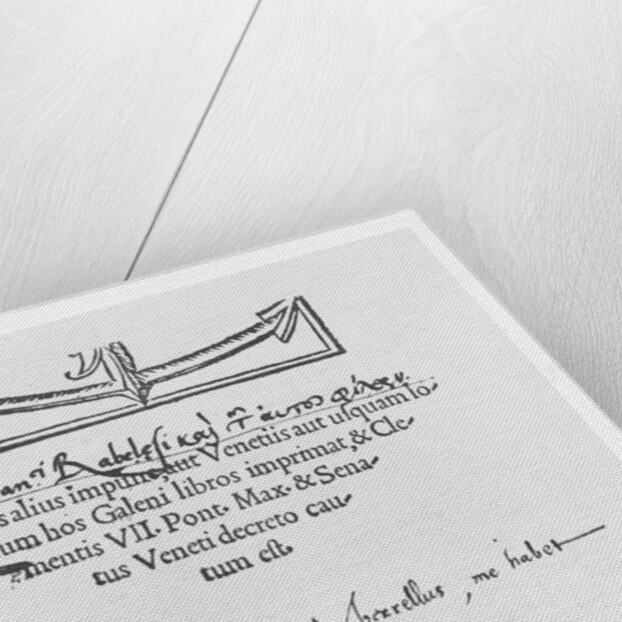 Rabelæsi καὶ τ αυτου φιλων.
s alius impune, aut Venetiis aut usquam lo-
um hos Galeni libros imprimat, & Cle-
mentis VII. Pont. Max. & Sena-
tus Veneti decreto cau-
tum est.
me habet